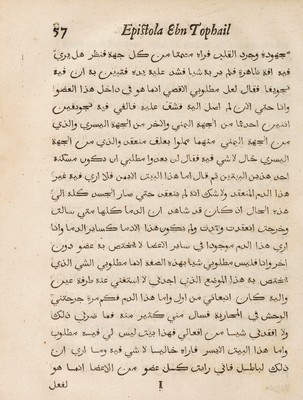 57 Epistola Ebn Tophail
مجهوده وجرد القلب فراه مصمتا من كل جهة فنظر هل يري
فيه افة ظاهرة فلم ير به شيا فشد عليه يده فتبين به ان فيه
تجويفا فقال لعل مطلوبي الاقصي انما هو في داخل هذا العضو
وانا حتي الان لم اصل اليه فشق عليه فالفي فيه تجويفين
اثنين احدهما من الجهة اليمني والاخر من الجهة اليسري والذي
من الجهة اليمني منهما مملوا بعلق منعقد والذي من الجهة
اليسري خال لا شي فيه فقال لن يعدوا مطلبي ان يكون مسكنه
احد هذين البيتين ثم قال اما هذا البيت الايمن فلا اري فيه غير
هذا الدم المنعقد ولا شك انه لم ينعقد حتي صار الجسد كله الي
هذه الحال ان كان قد شاهد ان الدما كلها متي سالت
وخرجت انعقدت وجمدت ولم يكون هذا الا دما كساير الدما وانا
اري هذا الدم موجودا في ساير الاعضا لا يختص به عضو دون
اخر وانا فليس مطلوبي شيا بهذه الصفة انما مطلوبي الشي الذي
يختص به هذا الموضع الذي اجدني لا استغني عنه طرفة عين
واليه كان انبعاثي من اول واما هذا الدم فكم مرة جرحتني
الوحش في المحاربة فسال مني كثير منه فما ضرني ذلك
ولا افقدني شيا من افعالي فهذا بيت ليس لي فيه مطلوب
واما هذا البيت الايسر فاراه خاليا لا شي فيه وما اري ان
ذلك لباطل فاني رايت كل عضو من الاعضا انما هو
I لفعل